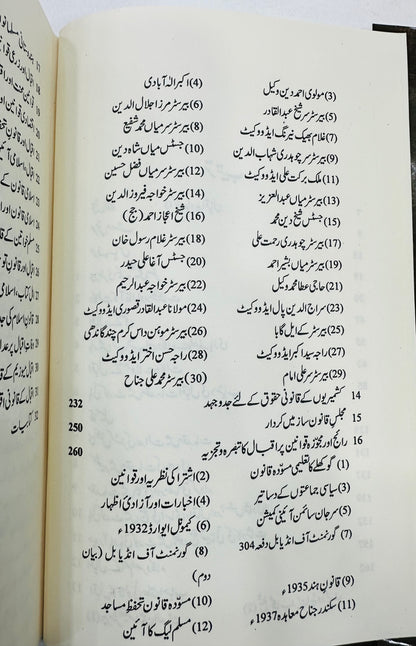 (3) مولوی احمد دین وکیل (4) اکبر الٰہ آبادی
(5) بیرسٹر سر شیخ عبدالقادر (6) بیرسٹر مرزا جلال الدین
(7) غلام بھیک نیرنگ ایڈووکیٹ (8) بیرسٹر سر میاں محمد شفیع
(9) بیرسٹر سر چوہدری شہاب الدین (10) جسٹس میاں شاہ دین
(11) ملک برکت علی ایڈووکیٹ (12) بیرسٹر سر میاں فضل حسین
(13) بیرسٹر میاں عبدالعزیز (14) بیرسٹر خواجہ فیروز الدین
(15) جسٹس شیخ دین محمد (16) شیخ اعجاز احمد (جج)
(17) بیرسٹر چوہدری رحمت علی (18) بیرسٹر غلام رسول خان
(19) بیرسٹر میاں بشیر احمد (20) جسٹس آغا علی حیدر
(21) حاجی عطا محمد وکیل (22) بیرسٹر خواجہ عبدالرحیم
(23) سراج الدین پال ایڈووکیٹ (24) مولانا عبدالقادر قصوری ایڈووکیٹ
(25) بیرسٹر کے ایل گابا (26) بیرسٹر موہن داس کرم چند گاندھی
(27) راجہ سید اکبر ایڈووکیٹ (28) راجہ حسن اختر ایڈووکیٹ
(29) بیرسٹر سر علی امام (30) بیرسٹر محمد علی جناح
14 کشمیریوں کے قانونی حقوق کے لئے جدوجہد 232
15 مجلس قانون ساز میں کردار 250
16 رائج اور مجوّزہ قوانین پر اقبال کا تبصرہ و تجزیہ 260
(1) گوکھلے کا تعلیمی مسوّدہ قانون (2) اشتراکی نظریہ اور قوانین
(3) سیاسی جماعتوں کے دساتیر (4) اخبارات اور آزادیٔ اظہار
(5) سر جان سائمن آئینی کمیشن (6) کمیونل ایوارڈ 1932ء
(7) گورنمنٹ آف انڈیا بل دفعہ 304 (8) گورنمنٹ آف انڈیا بل (بیان
دوم)
(9) قانون ہند 1935ء (10) مسوّدہ قانون تحفظِ مساجد
(11) سکندر جناح معاہدہ 1937ء (12) مسلم لیگ کا آئین